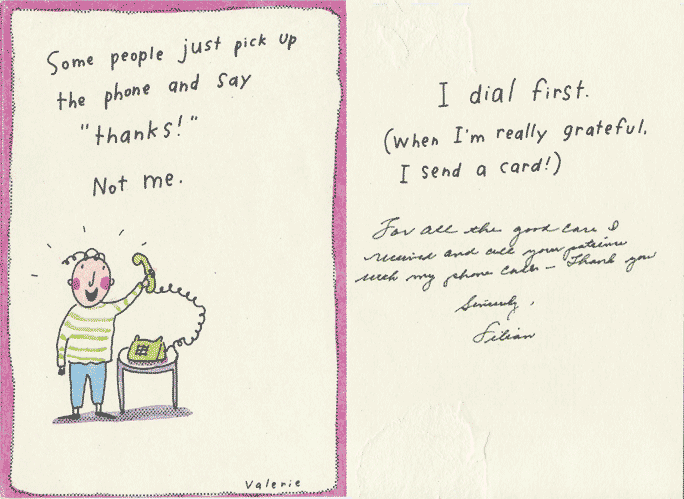 Some people just pick up
the phone and say
"thanks!"
Not me.
Valerie
I dial first.
(When I'm really grateful,
I send a card!)
For all the good care I
received and all your patience
with my phone calls - Thank you
Sincerely,
Lilian